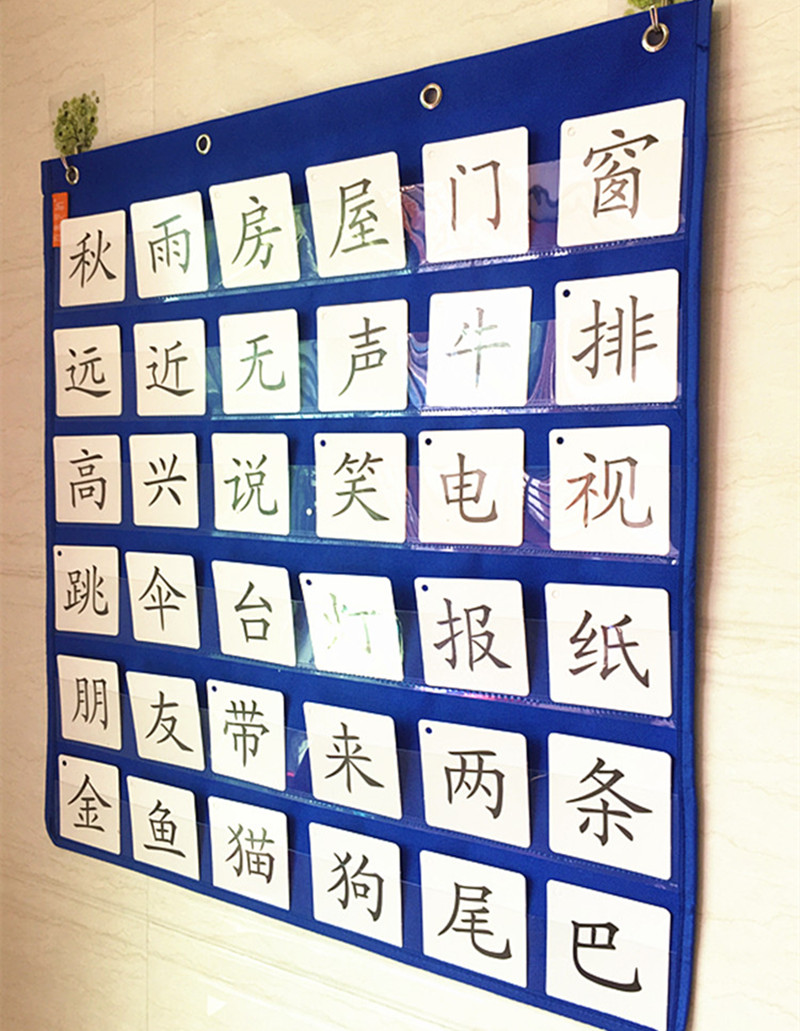 秋雨房屋门窗
远近无声牛排
高兴说笑电视
跳伞台灯报纸
朋友带来两条
金鱼猫狗尾巴